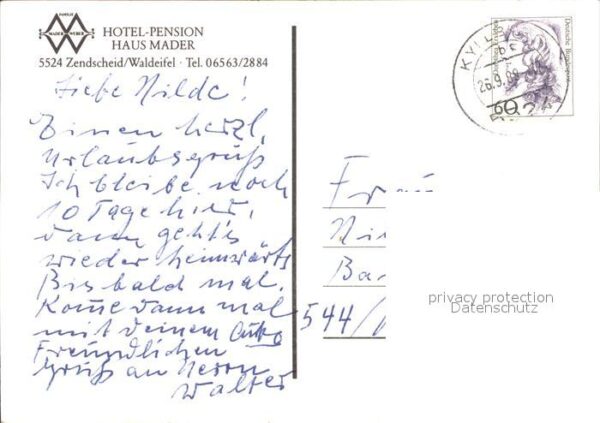 FAMILIE
MADER WEBER
HOTEL-PENSION
HAUS MADER
5524 Zendscheid/Waldeifel · Tel. 06563/2884
Liebe Hilde!
Einen herzl.
Urlaubsgruß
Ich bleibe noch
10 Tage hier,
dann geht's
wieder heimwärts
Bis bald mal.
Kome dann mal
mit deinem Auto
Freundlichen
Gruß an Herrn
Walter
KYLL
26.9.89
Deutsche Bundespost
60
Frau
Hi
Ba
544/
privacy protection
Datenschutz